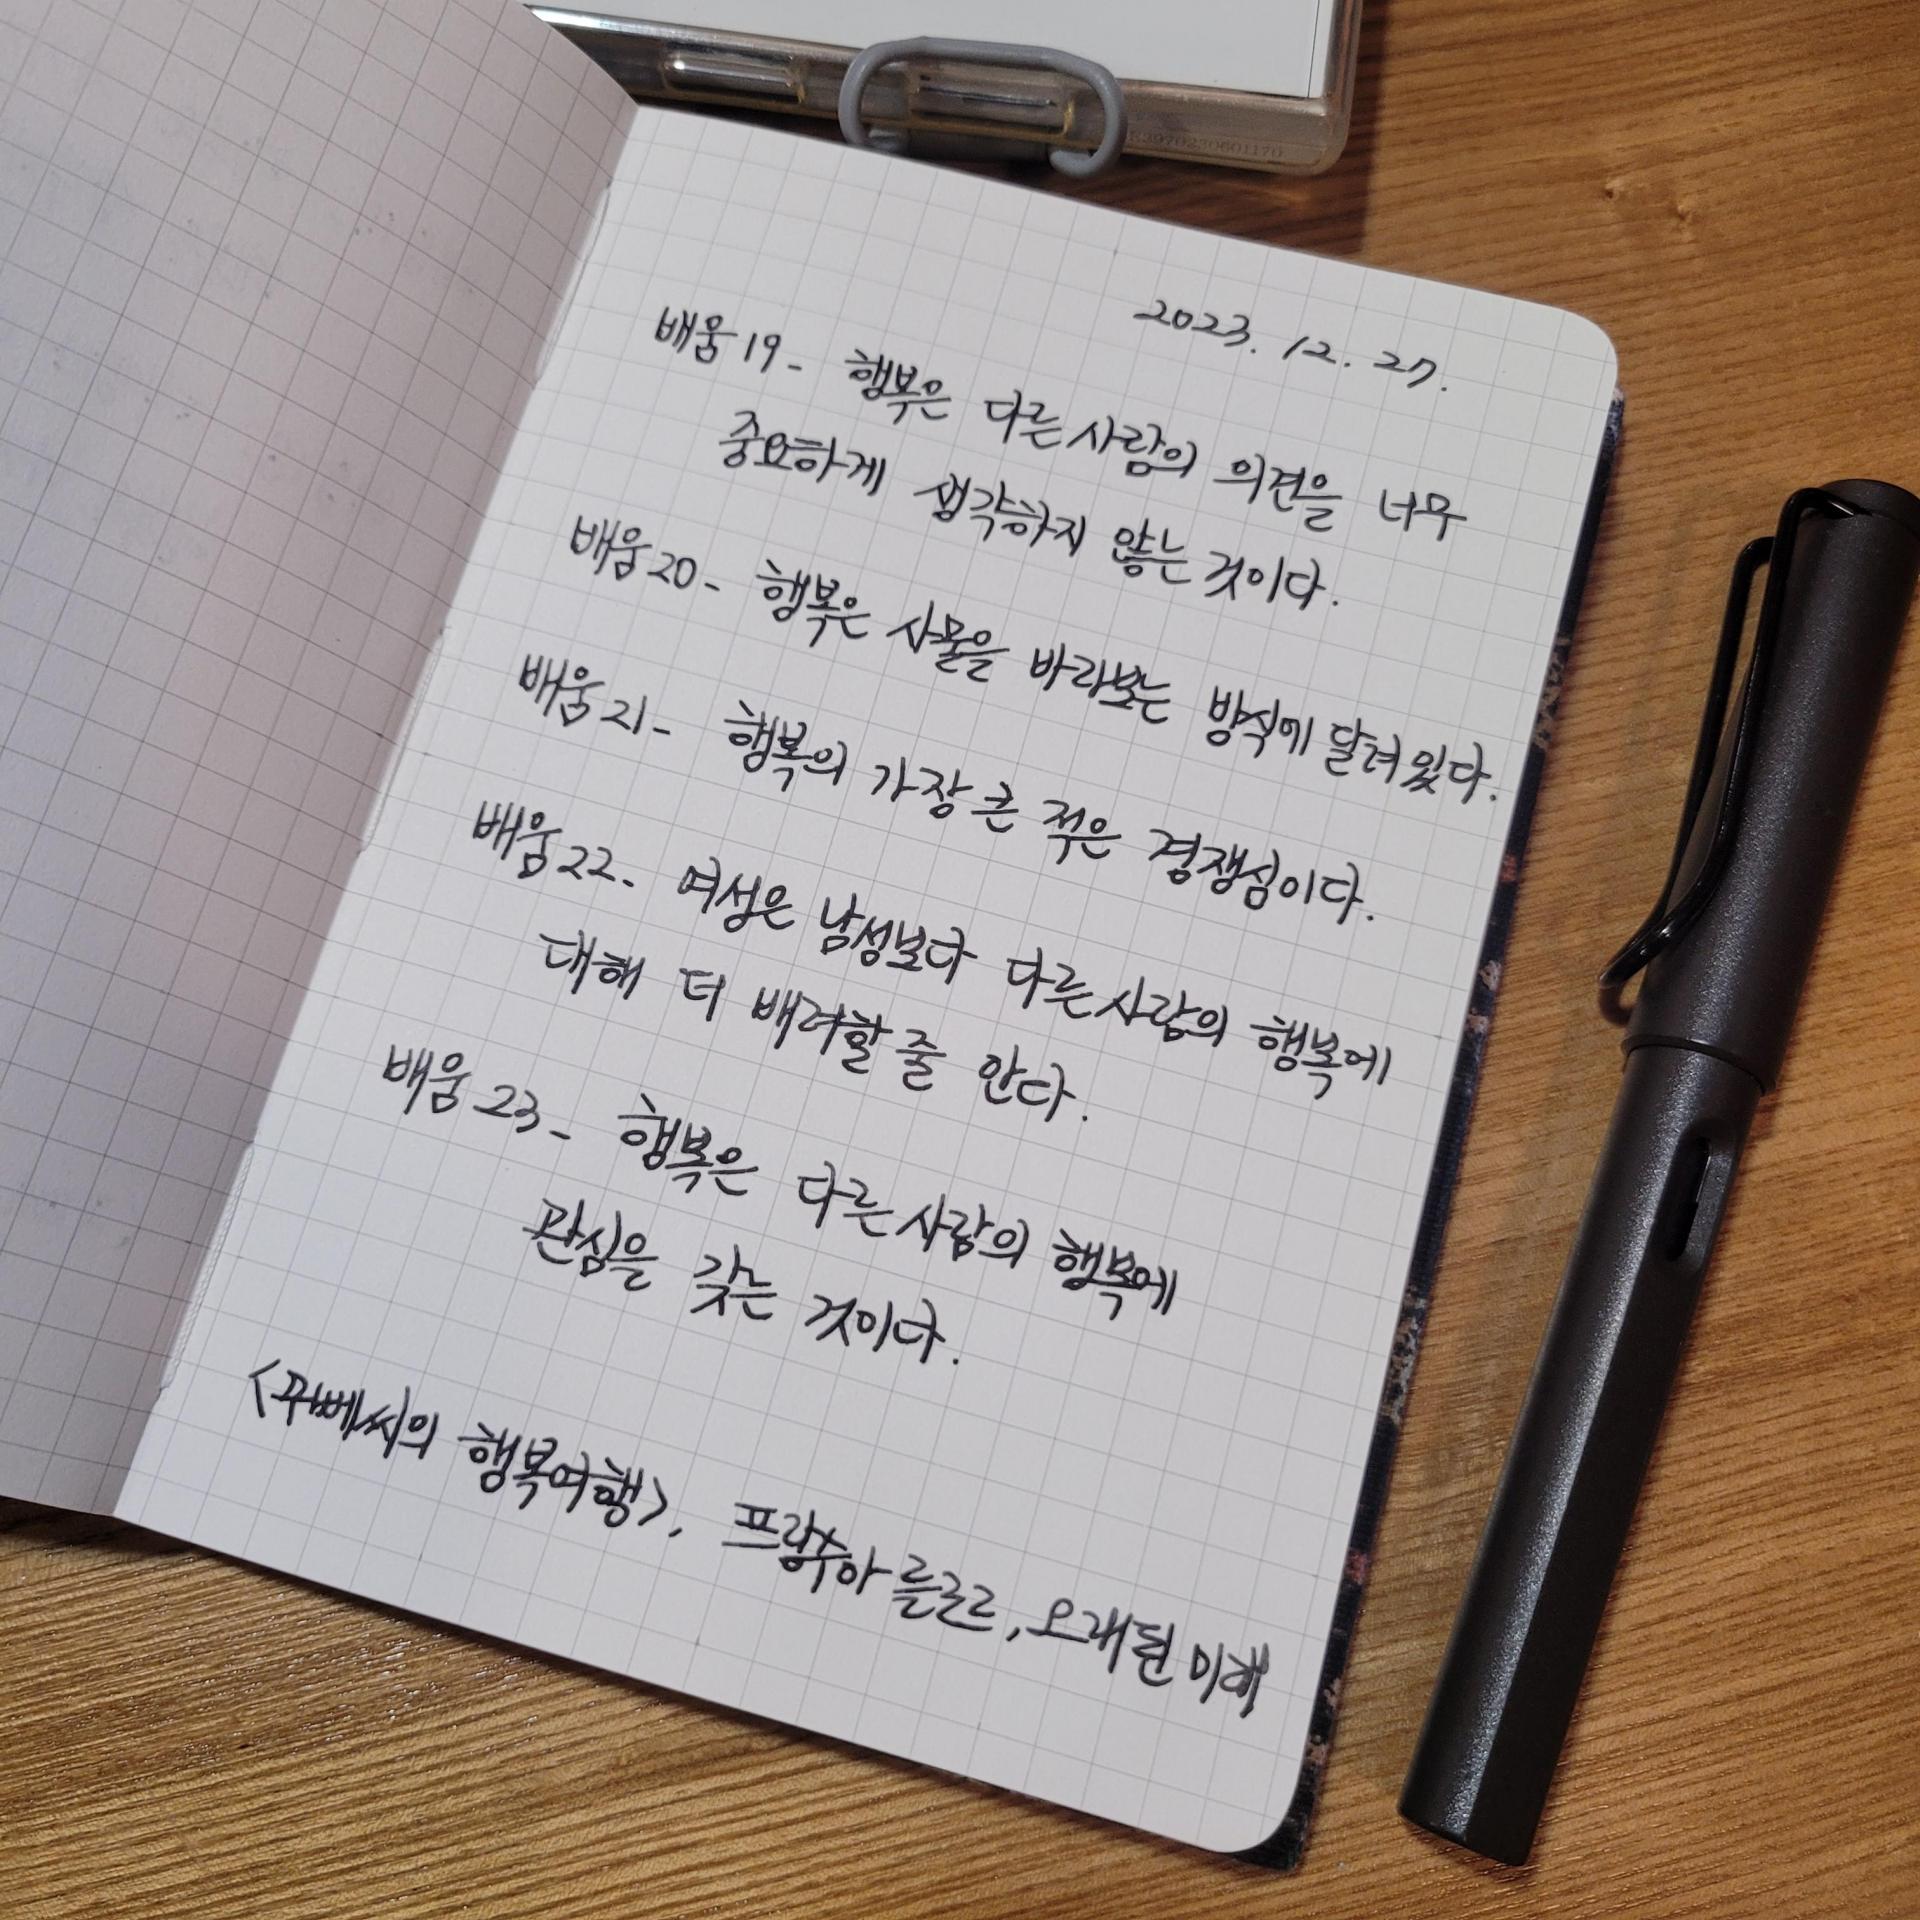 2023. 12. 27.
배움 19- 행복은 다른 사람의 의견을 너무
중요하게 생각하지 않는 것이다.
배움 20- 행복은 사물을 바라보는 방식에 달려있다.
배움 21- 행복의 가장 큰 적은 경쟁심이다.
배움 22- 여성은 남성보다 다른 사람의 행복에
대해 더 배려할 줄 안다.
배움 23- 행복은 다른 사람의 행복에
관심을 갖는 것이다.
<꾸뻬씨의 행복여행>, 프랑수아 를로르, 오래된 미래